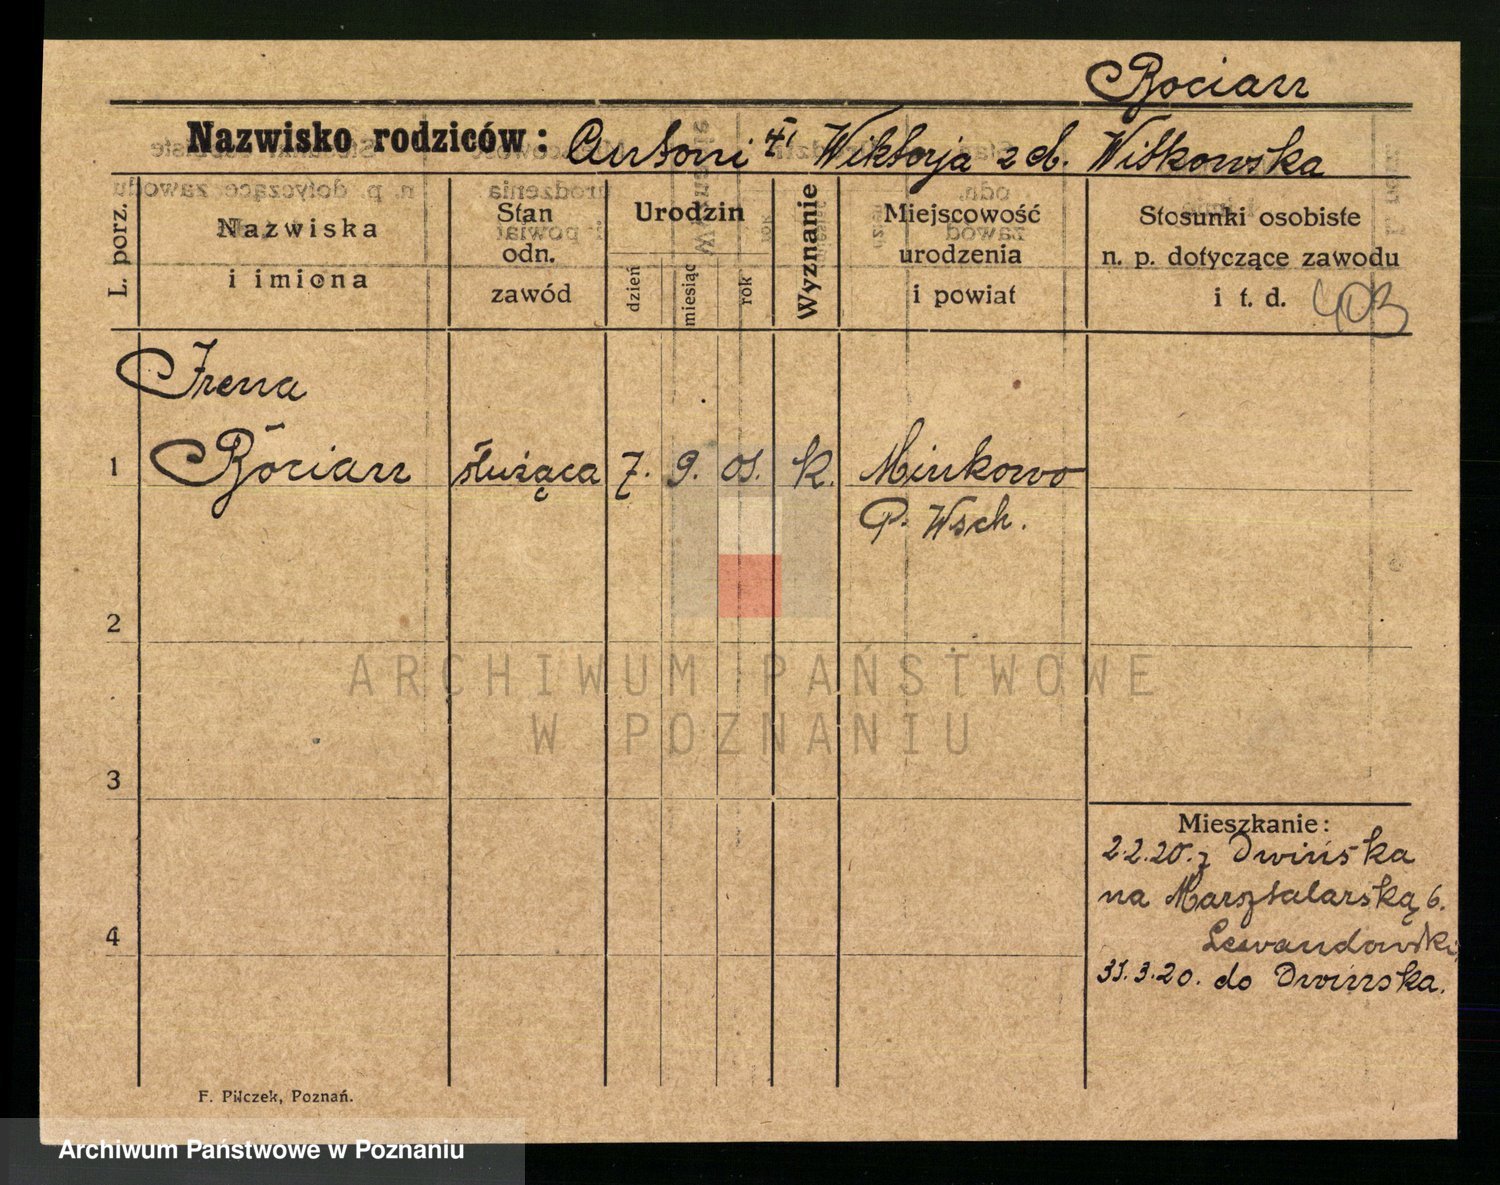 Bocian
Nazwisko rodziców: Antoni †, Wiktorja z d. Witkowska
L. porz.
Nazwiska
i imiona
Stan
odn.
zawód
Urodzin
dzień
miesiąc
rok
Wyznanie
Miejscowość
urodzenia
i powiat
Stosunki osobiste
n. p. dotyczące zawodu
i t. d. 403
Irena
1 Bocian służąca 7. 9. 01. k. Minkowo
P. Wsch.
2
3
4
Mieszkanie:
2.2.20. z Dwińska
na Marsztalarską 6.
Lewandowski
31.3.20. do Dwińska.
F. Pilczek, Poznań.
ARCHIWUM PAŃSTWOWE
W POZNANIU
Archiwum Państwowe w Poznaniu